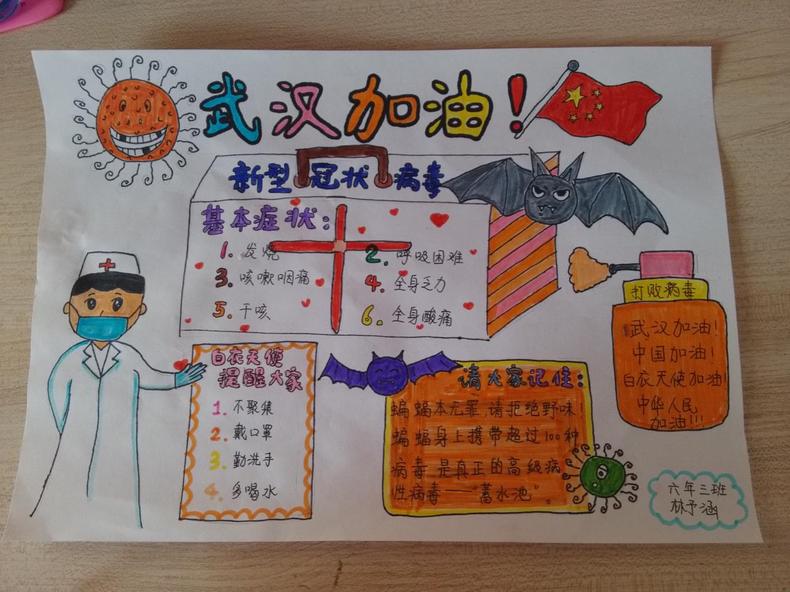 武汉加油！
新型冠状病毒
基本症状：
1. 发烧
2. 呼吸困难
3. 咳嗽咽痛
4. 全身乏力
5. 干咳
6. 全身酸痛
打败病毒
武汉加油！
中国加油！
白衣天使加油！
中华人民
加油!!!
白衣天使
提醒大家
1. 不聚集
2. 戴口罩
3. 勤洗手
4. 多喝水
请大家记住：
蝙蝠本无罪，请拒绝野味！
蝙蝠身上携带超过100种
病毒，是真正的高级病
性病毒——“蓄水池”。
六年三班
林予涵